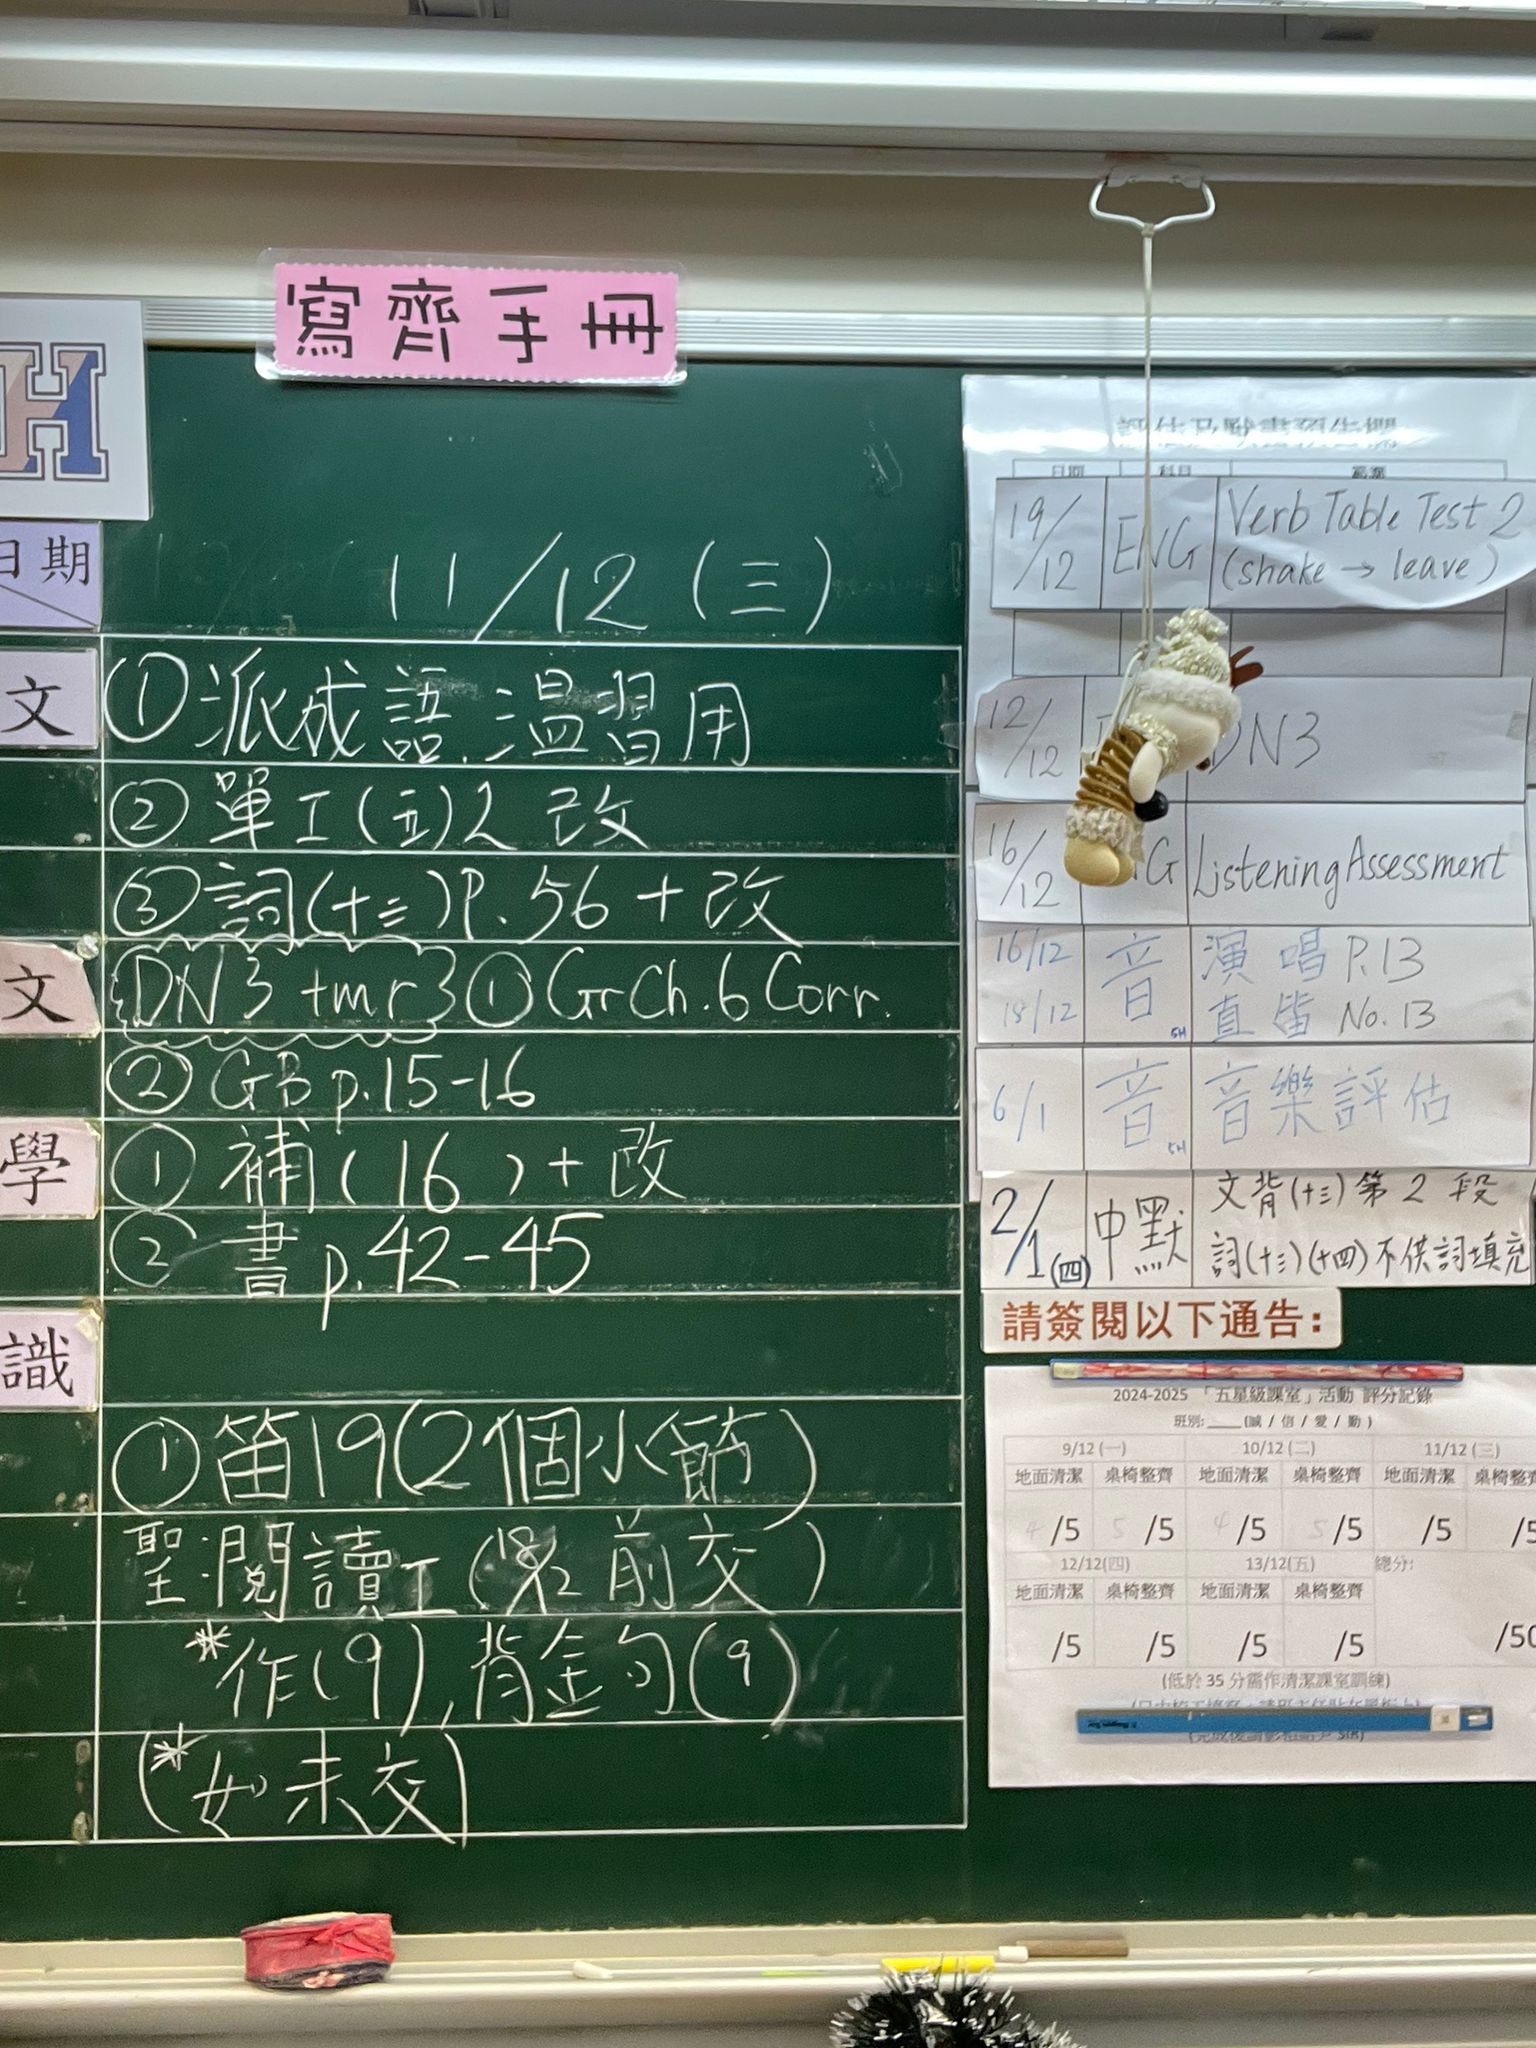 寫齊手冊
H
日期
11/12 (三)
文
① 派成語,溫習用
② 單工(五)2 改
③ 詞(十三)P.56 + 改
文
DN3 tmr ① Gr Ch.6 Corr.
② GB p.15-16
學
① 補(16)+改
② 書 p.42-45
識
① 笛19(2個小節)
聖:閱讀工(18/12前交)
*作(9),背金句(9)
(*如未交)
日期 科目 範圍
19/12 ENG Verb Table Test 2
(shake → leave)
12/12 DN3
16/12 G Listening Assessment
16/12 音 演唱 P.13
18/12 5H 直笛 No.13
6/1 音 5H 音樂評估
2/1(四) 中默 文背(十三)第2段
詞(十三)(十四)不供詞填充
請簽閱以下通告:
2024-2025 「五星級課室」活動 評分記錄
班別:____(誠 / 信 / 愛 / 勤)
9/12 (一) 10/12 (二) 11/12 (三)
地面清潔 桌椅整齊 地面清潔 桌椅整齊 地面清潔 桌椅整齊
4 /5 5 /5 4 /5 5 /5 /5 /5
12/12(四) 13/12(五) 總分:
地面清潔 桌椅整齊 地面清潔 桌椅整齊
/5 /5 /5 /5 /50
(低於 35 分需作清潔課室訓練)